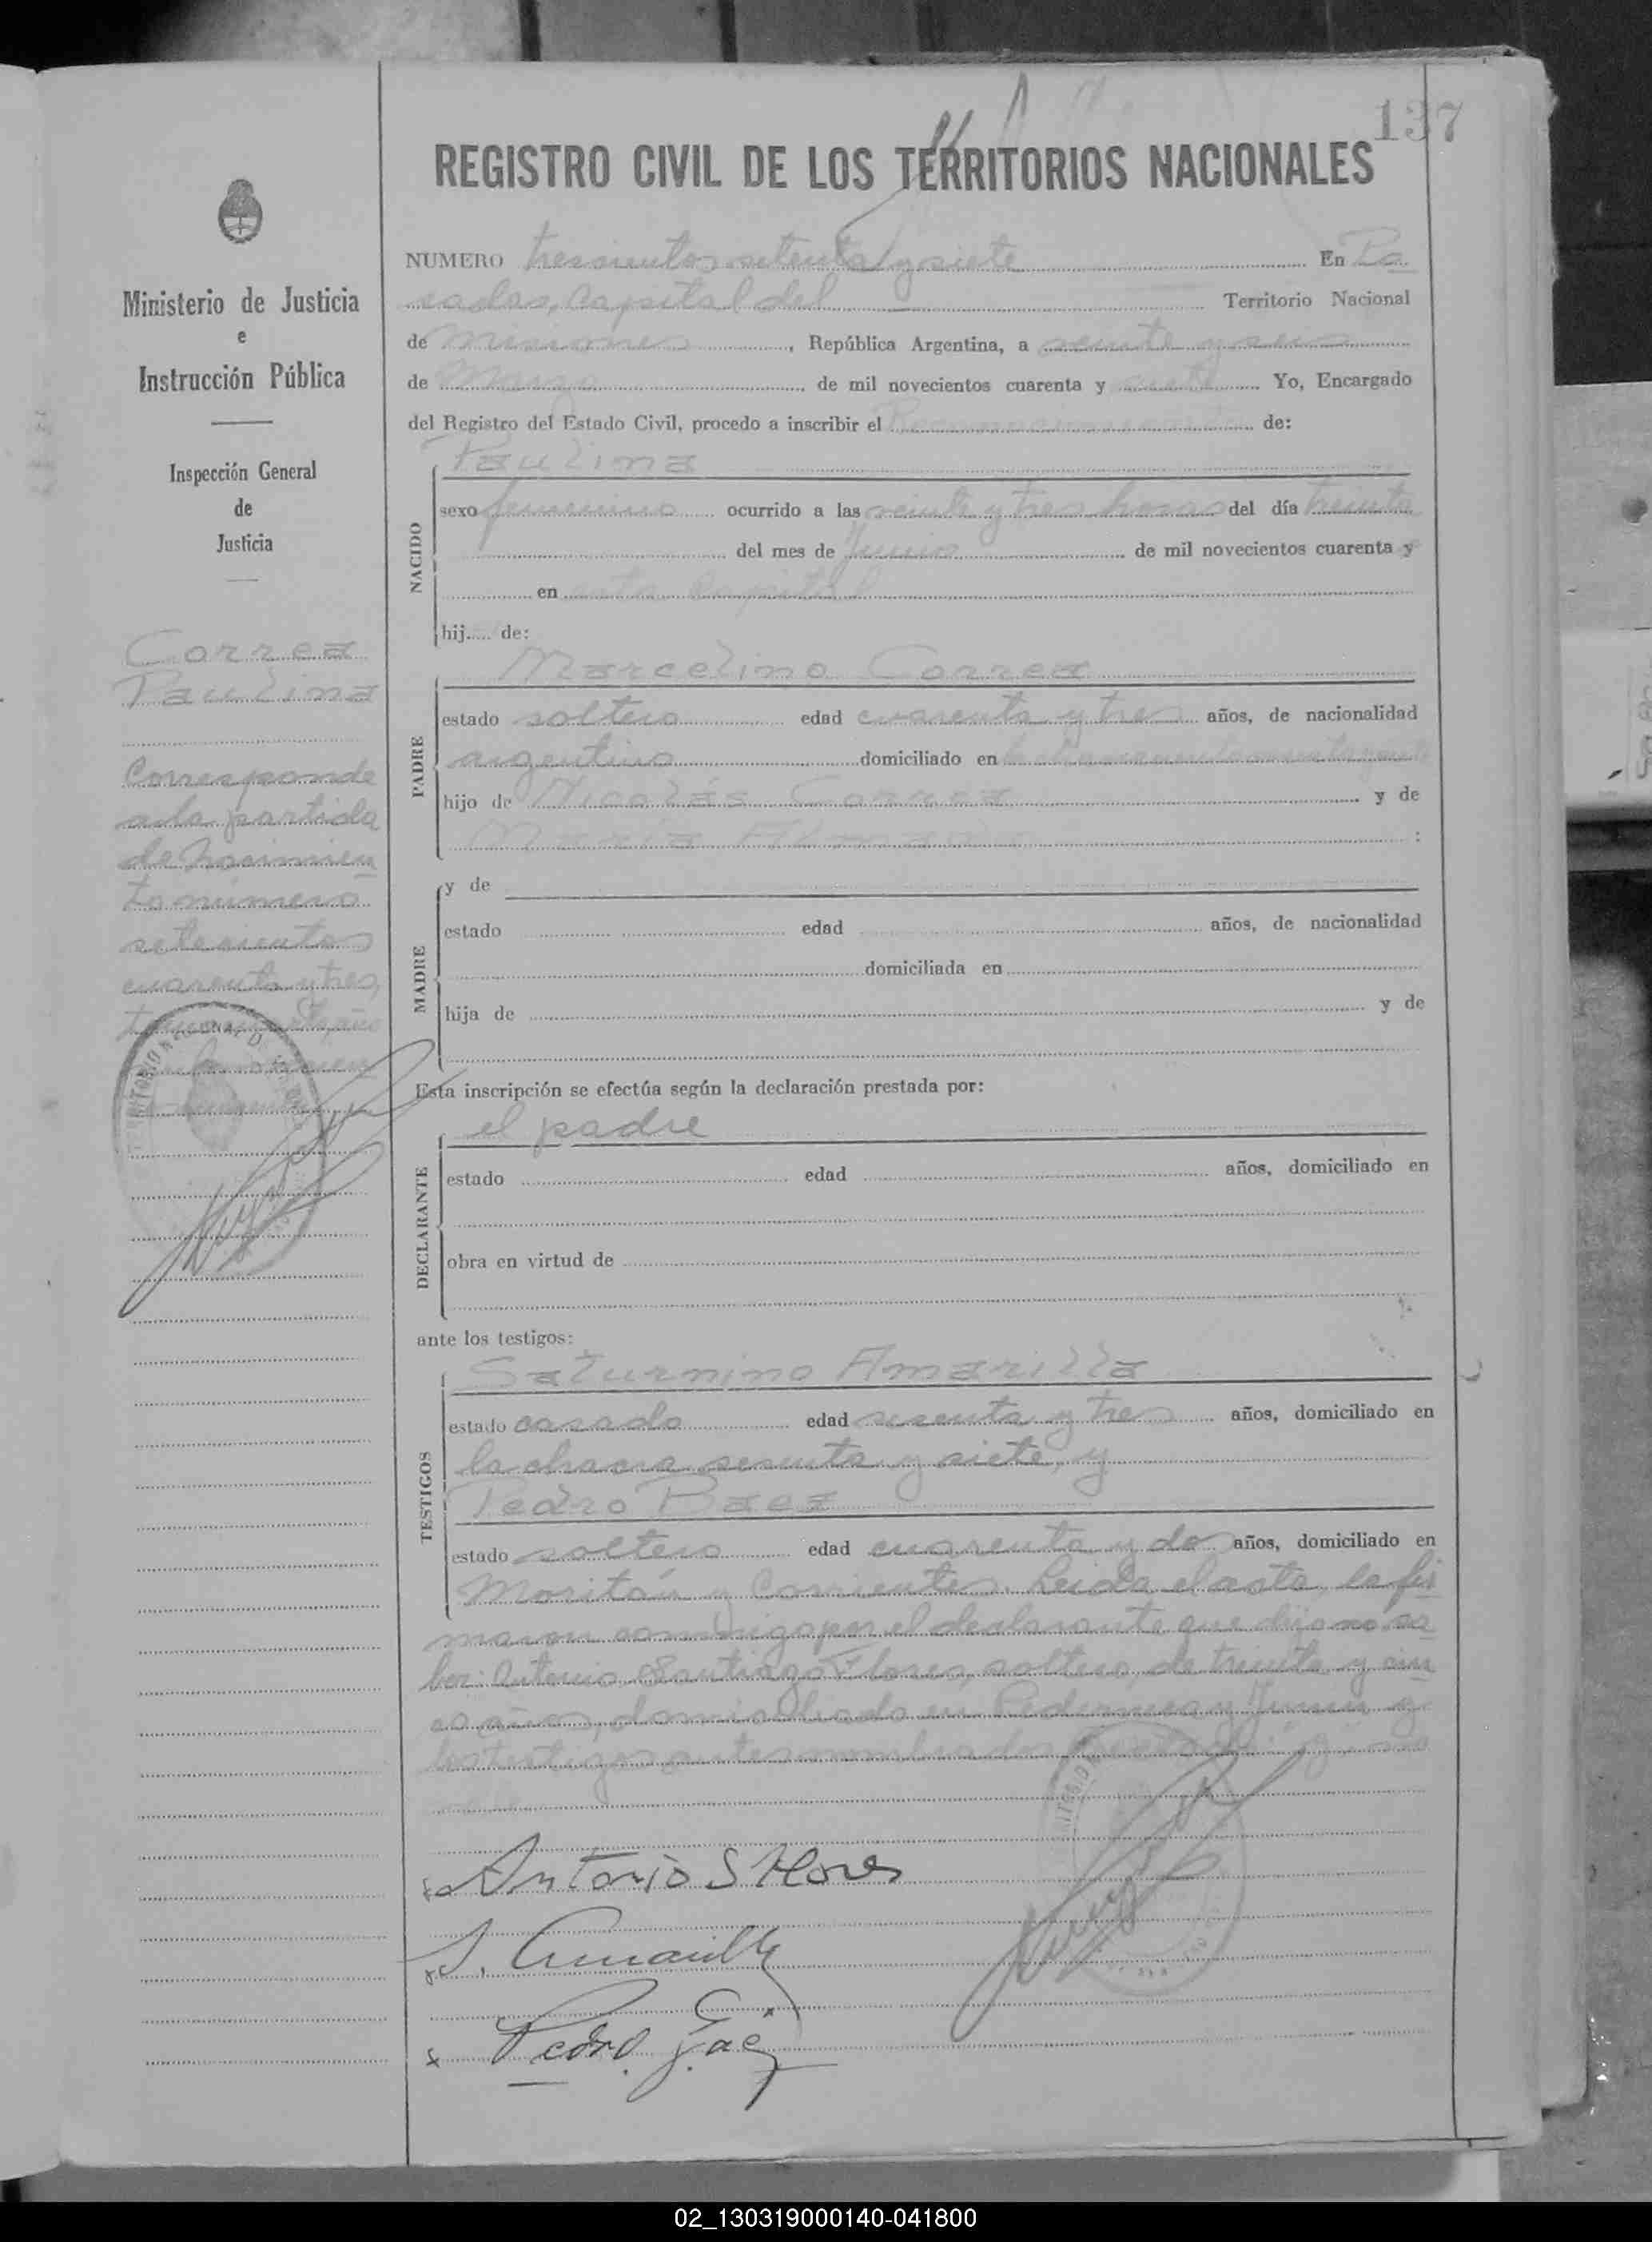 137
REGISTRO CIVIL DE LOS TERRITORIOS NACIONALES
NUMERO trescientos setenta y siete En Po
sadas, Capital del Territorio Nacional
de Misiones, República Argentina, a veinte y seis
de Marzo de mil novecientos cuarenta y siete Yo, Encargado
del Registro del Estado Civil, procedo a inscribir el Reconocimiento de:
Paulina
NACIDO
sexo femenino ocurrido a las veinte y tres horas del día treinta
del mes de Junio de mil novecientos cuarenta y
en esta Capital
hij de:
Marcelino Correa
PADRE
estado soltero edad cuarenta y tres años, de nacionalidad
argentino domiciliado en
hijo de Nicolás Correa y de
María :
MADRE
y de
estado edad años, de nacionalidad
domiciliada en
hija de y de
Esta inscripción se efectúa según la declaración prestada por:
el padre
DECLARANTE
estado edad años, domiciliado en
obra en virtud de
ante los testigos:
Saturnino Amarilla
TESTIGOS
estado casado edad sesenta y tres años, domiciliado en
la chacra sesenta y siete, y
Pedro Baez
estado soltero edad cuarenta y dos años, domiciliado en
y Corrientes. Leida el acta, la fir
maron conmigo por el declarante que dijo no sa
ber: Antonio Santiago Flores, soltero, de treinta y cin
co años, domiciliado en y Junin y
los testigos antes nombrados
Antonio S Flores
S. Amarilla
Pedro Baez
Ministerio de Justicia
e
Instrucción Pública
Inspección General
de
Justicia
Correa
Paulina
Corresponde
a la partida
de Nacimien
to número
setecientos
cuarenta y tres,
02_130319000140-041800